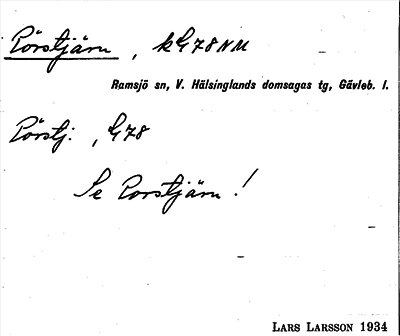 Rörstjärn, k G78 NM
Ramsjö sn, V. Hälsinglands domsagas tg, Gävleb. l.
Rörstj: , G78
Se Rorstjärn!
LARS LARSSON 1934